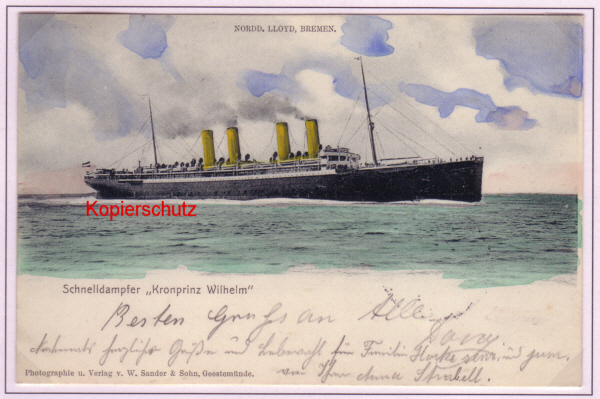 NORDD. LLOYD, BREMEN.
Kopierschutz
Schnelldampfer „Kronprinz Wilhelm"
Besten Gruss an
herzliche Grüße und Lebewohl für Familie
von Ihrer Anna
Photographie u. Verlag v. W. Sander & Sohn, Geestemünde.